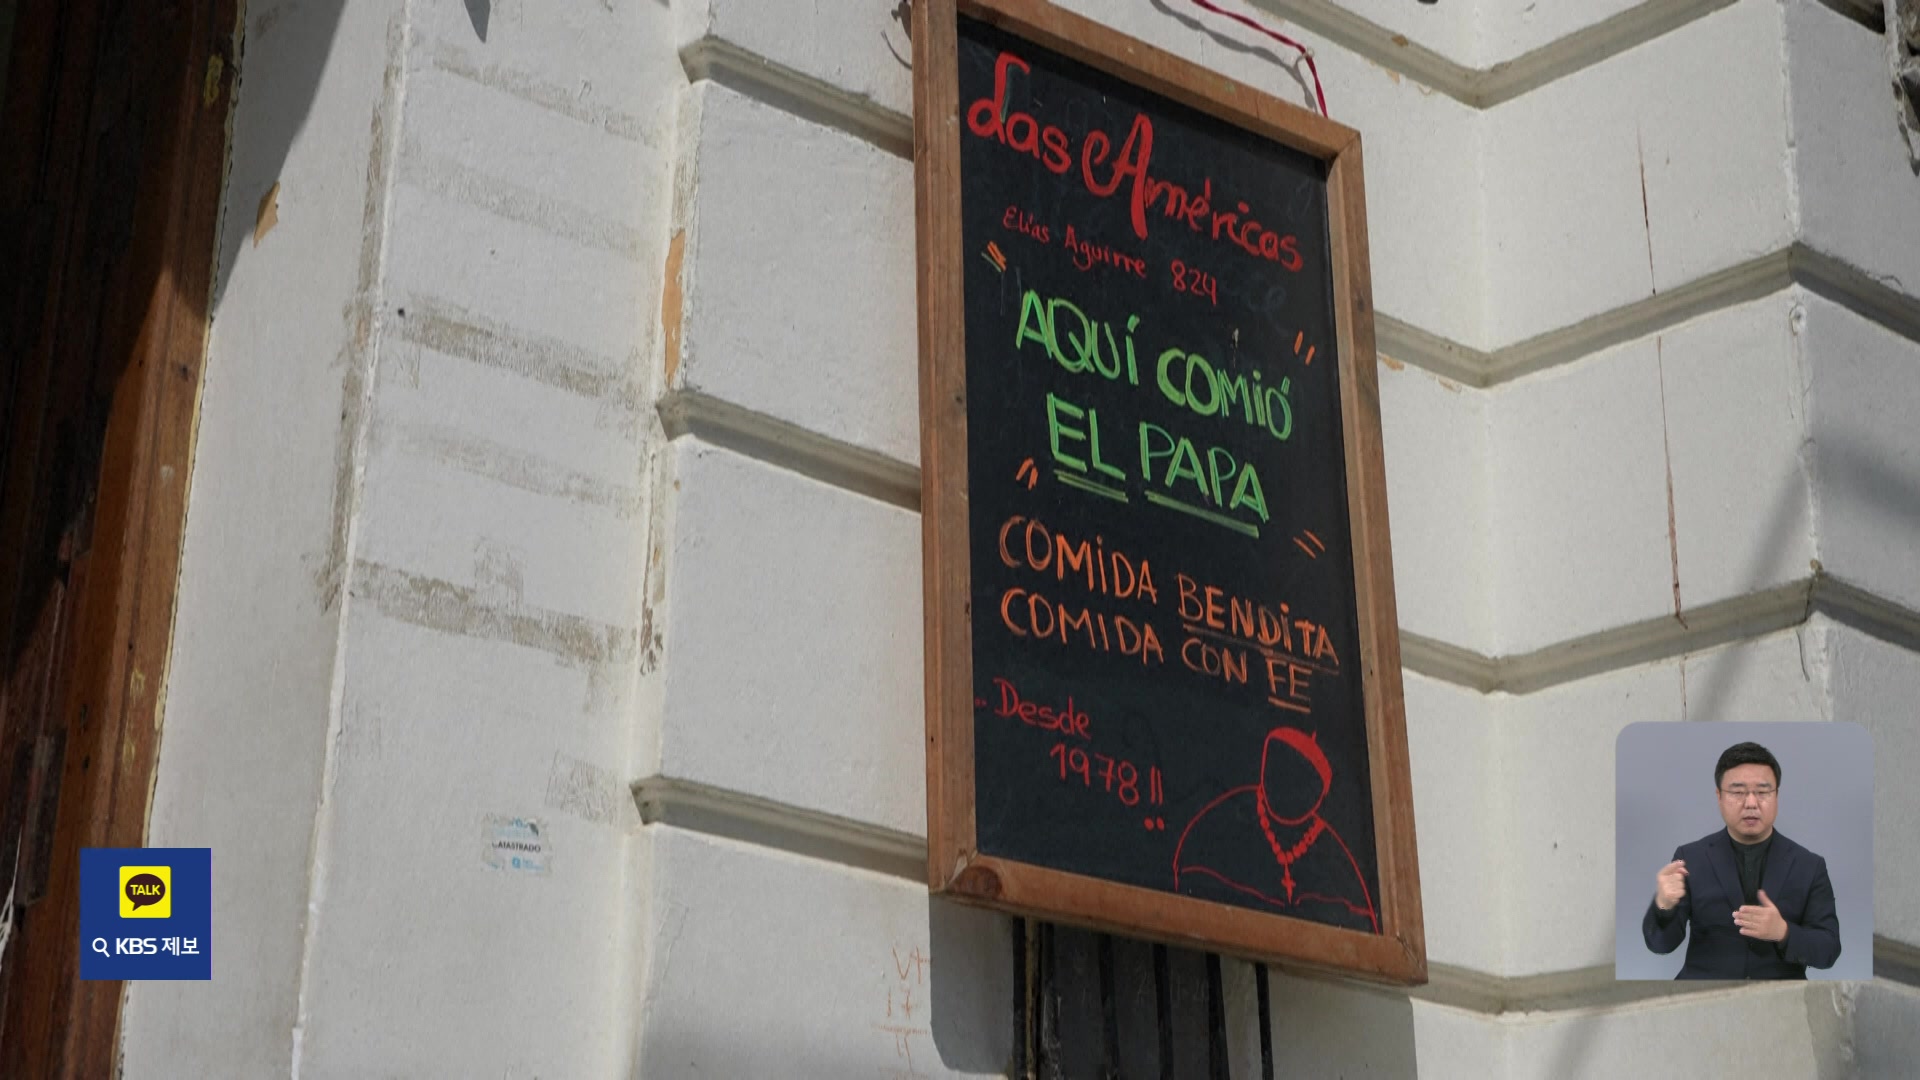 Las Américas
Elías Aguirre 824
AQUÍ COMIÓ
EL PAPA
COMIDA BENDITA
COMIDA CON FE
Desde
1978!!
CATASTRADO
TALK
KBS 제보